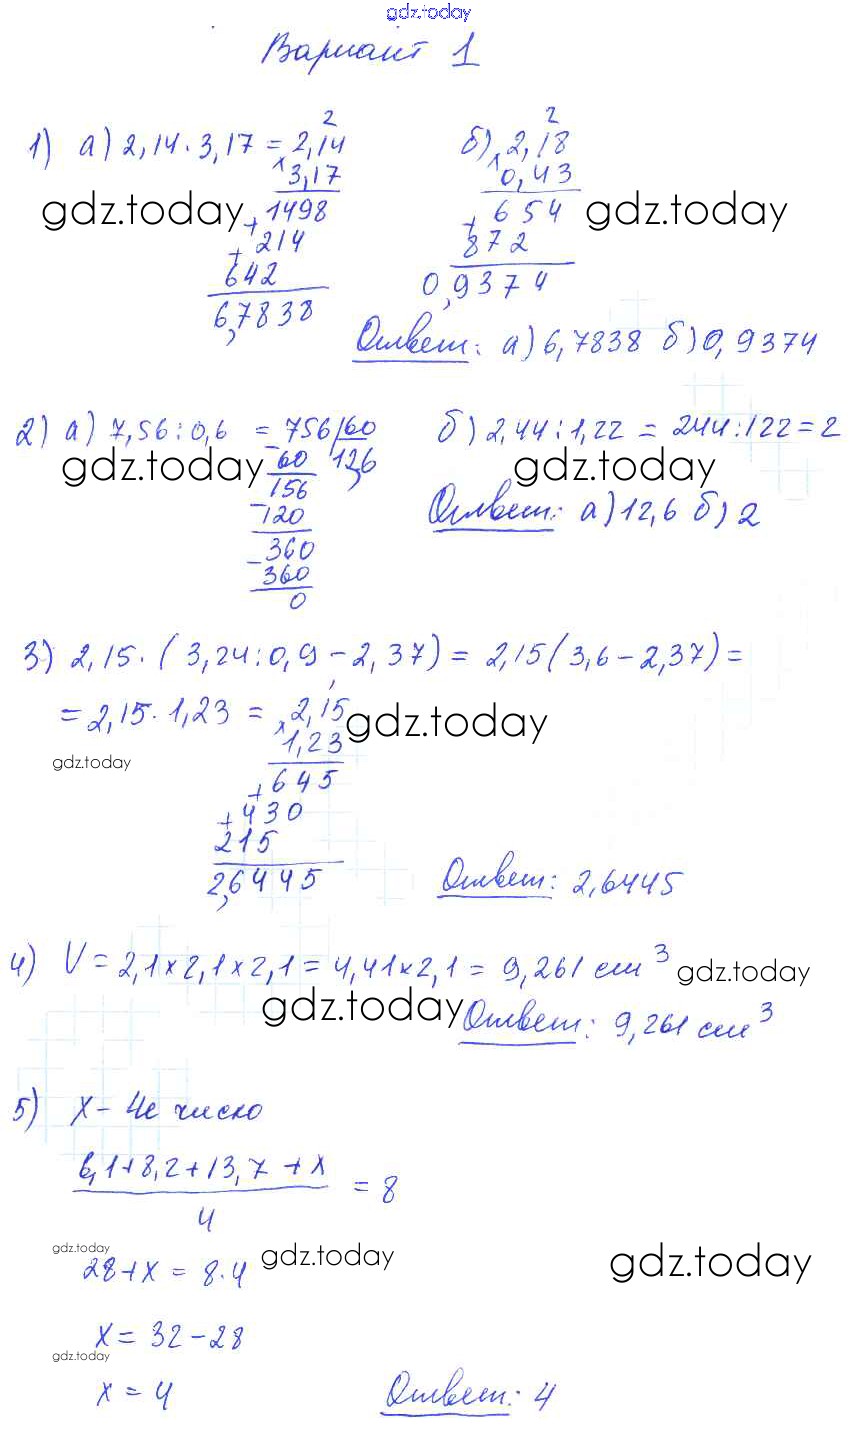 gdz.today
Вариант 1
2 2
1) а) 2,14 · 3,17 = 2,14 б) 2,18
× 3,17 × 0,43
gdz.today + 1498 + 654 gdz.today
+ 214 872
642 0,9374
6,7838
Ответ: а) 6,7838 б) 0,9374
2) а) 7,56 : 0,6 = 756 | 60 б) 2,44 : 1,22 = 244 : 122 = 2
gdz.today - 60 12,6 gdz.today
156 Ответ: а) 12,6 б) 2
- 120
- 360
360
0
3) 2,15 · (3,24 : 0,9 - 2,37) = 2,15 (3,6 - 2,37) =
= 2,15 · 1,23 = × 2,15 gdz.today
gdz.today 1,23
+ 645
+ 430
215
2,6445 Ответ: 2,6445
4) V = 2,1 × 2,1 × 2,1 = 4,41 × 2,1 = 9,261 см³ gdz.today
gdz.today Ответ: 9,261 см³
5) x - 4е число
6,1 + 8,2 + 13,7 + x = 8
4
gdz.today gdz.today gdz.today
28 + x = 8 · 4
x = 32 - 28
gdz.today
x = 4 Ответ: 4